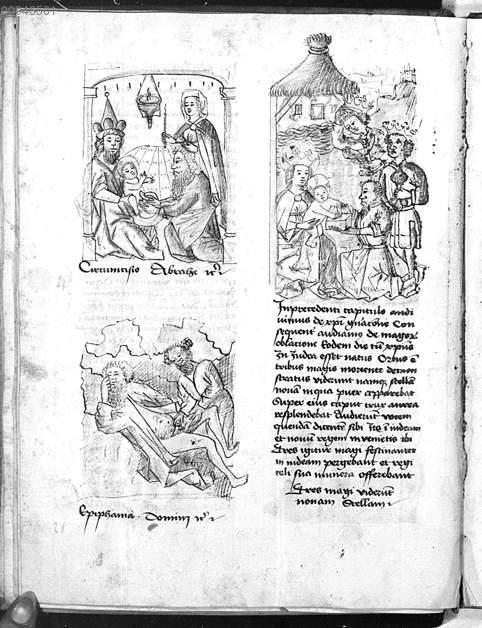 Circumcisio Abrahe
Epiphania Domini
In precedenti capitulo audi
uimus de xpi gnacōne Con
sequent̄ audiamus de magoꝝ
oblacione Eodem die cū xpius
in Judea esset natus Ortus ē
tribus magis in oriente demon
stratus viderunt namqꝫ stellā
nouā in qua puer apparebat
Super eius caput crux aurea
resplendebat Audierūt vocem
quandā dicentē sibi Ite i iudeam
et nouū regem inuenietis ibi
Tres igitur magi festinanter
in iudeam pergebant et regi
celi sua munera offerebant
Tres magi viderūt
nouam Stellam